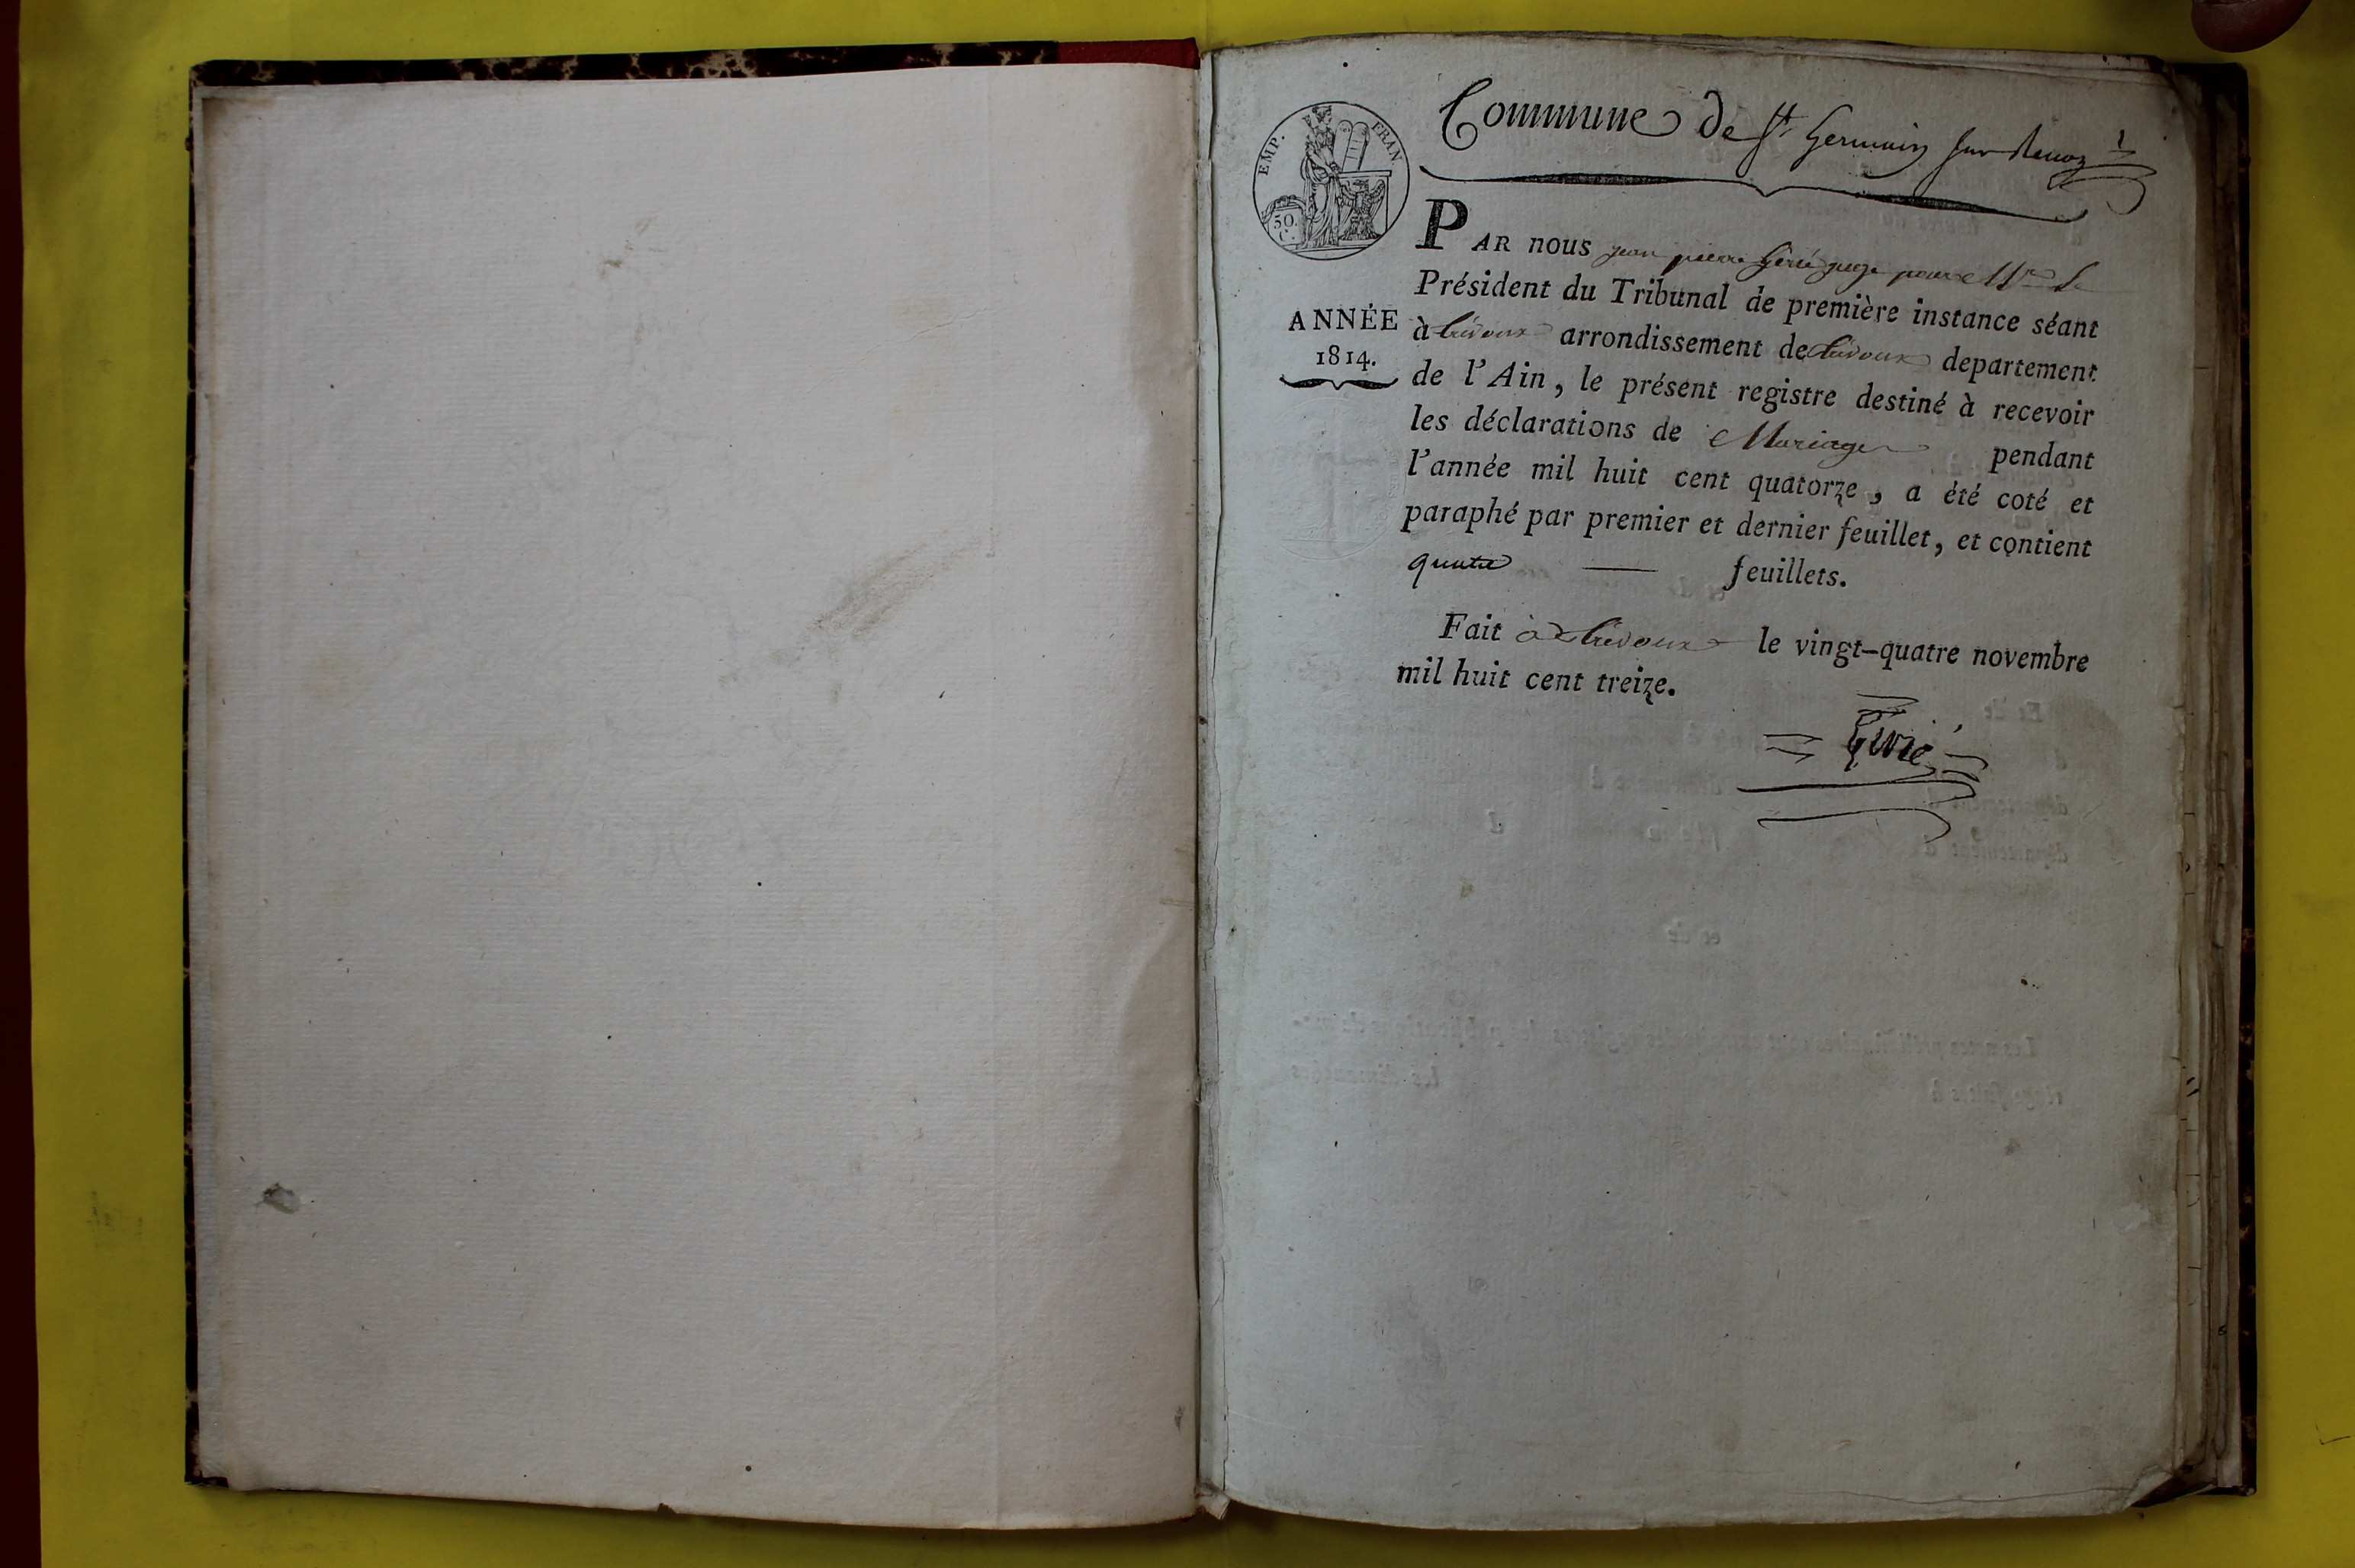 Commune de St Germain sur Renon 1
EMP. FRAN
50.
C.
PAR nous jean pierre Givié juge pour Mr le
Président du Tribunal de première instance séant
ANNÉE
1814.
à trévoux arrondissement de trévoux departement
de l'Ain, le présent registre destiné à recevoir
les déclarations de Mariage pendant
l'année mil huit cent quatorze, a été coté et
paraphé par premier et dernier feuillet, et contient
quatre — feuillets.
Fait à trévoux le vingt-quatre novembre
mil huit cent treize.